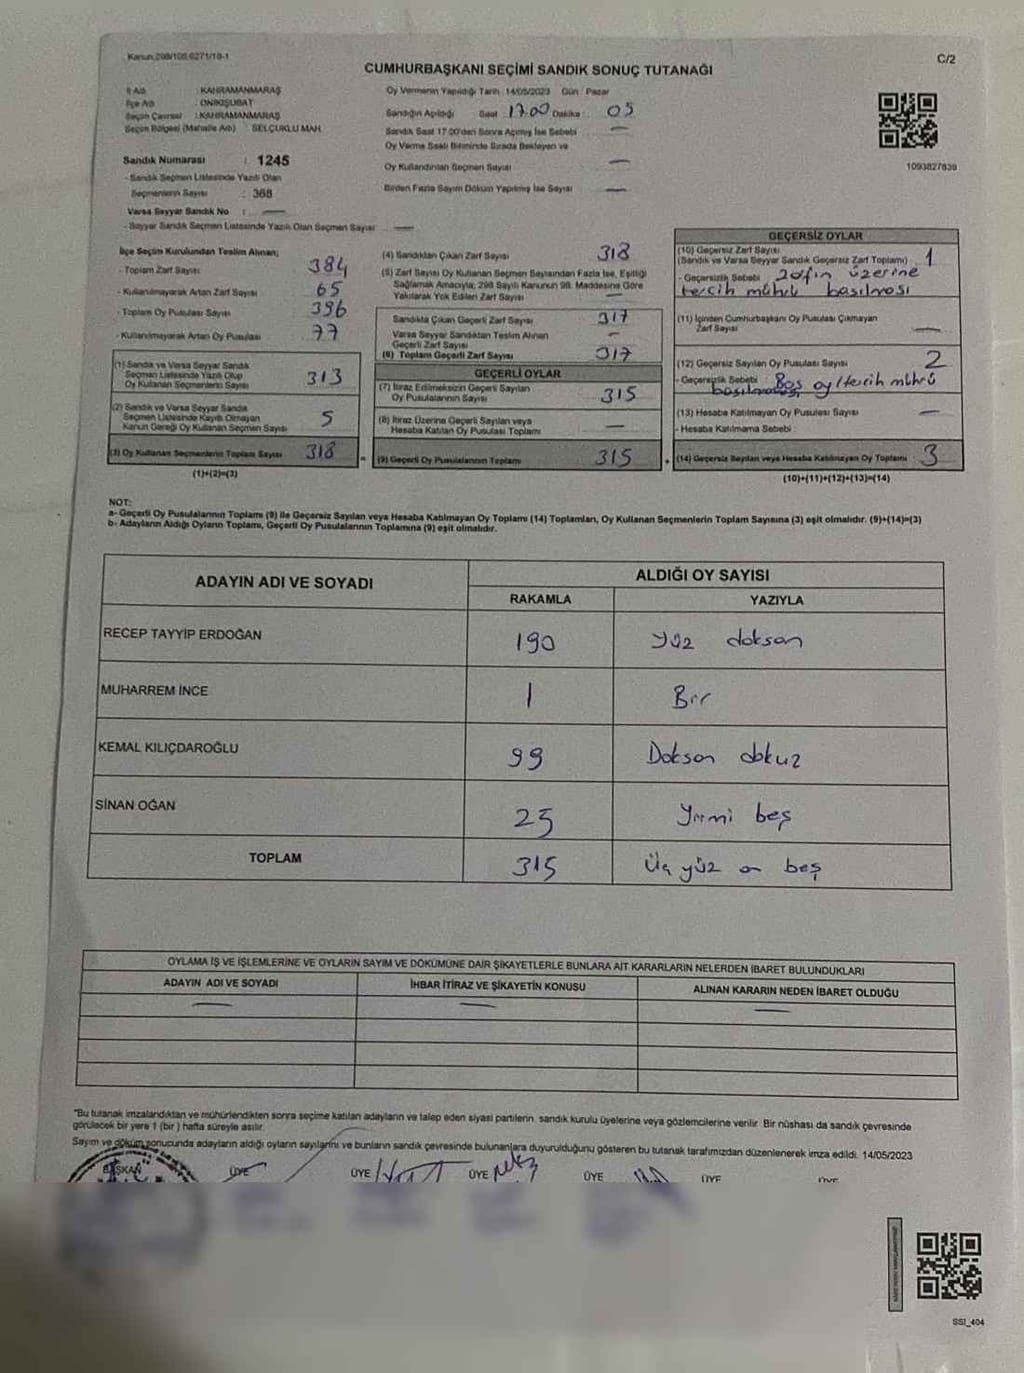 Kanun:298/108 6271/19-1
C/2
CUMHURBAŞKANI SEÇİMİ SANDIK SONUÇ TUTANAĞI
İl Adı : KAHRAMANMARAŞ
İlçe Adı : ONİKİŞUBAT
Seçim Çevresi : KAHRAMANMARAŞ
Seçim Bölgesi (Mahalle Adı) : SELÇUKLU MAH.
Sandık Numarası : 1245
- Sandık Seçmen Listesinde Yazılı Olan
Seçmenlerin Sayısı : 368
Varsa Seyyar Sandık No : —
- Seyyar Sandık Seçmen Listesinde Yazılı Olan Seçmen Sayısı —
Oy Vermenin Yapıldığı Tarih : 14/05/2023 Gün : Pazar
Sandığın Açıldığı Saat : 17.00 Dakika : 05
Sandık Saat 17:00'den Sonra Açılmış İse Sebebi —
Oy Verme Saati Bitiminde Sırada Bekleyen ve
Oy Kullandırılan Seçmen Sayısı —
Birden Fazla Sayım Döküm Yapılmış İse Sayısı —
1093827639
İlçe Seçim Kurulundan Teslim Alınan;
- Toplam Zarf Sayısı 384
- Kullanılmayarak Artan Zarf Sayısı 65
- Toplam Oy Pusulası Sayısı 396
- Kullanılmayarak Artan Oy Pusulası 77
(1) Sandık ve Varsa Seyyar Sandık
Seçmen Listesinde Yazılı Olup
Oy Kullanan Seçmenlerin Sayısı 313
(2) Sandık ve Varsa Seyyar Sandık
Seçmen Listesinde Kayıtlı Olmayan
Kanun Gereği Oy Kullanan Seçmen Sayısı 5
(3) Oy Kullanan Seçmenlerin Toplam Sayısı 318
(1)+(2)=(3)
(4) Sandıktan Çıkan Zarf Sayısı 318
(5) Zarf Sayısı Oy Kullanan Seçmen Sayısından Fazla İse, Eşitliği
Sağlamak Amacıyla; 298 Sayılı Kanunun 98. Maddesine Göre
Yakılarak Yok Edilen Zarf Sayısı —
Sandıkta Çıkan Geçerli Zarf Sayısı 317
Varsa Seyyar Sandıktan Teslim Alınan
Geçerli Zarf Sayısı —
(6) Toplam Geçerli Zarf Sayısı 317
GEÇERLİ OYLAR
(7) İtiraz Edilmeksizin Geçerli Sayılan
Oy Pusulalarının Sayısı 315
(8) İtiraz Üzerine Geçerli Sayılan veya
Hesaba Katılan Oy Pusulası Toplamı —
= (9) Geçerli Oy Pusulalarının Toplamı 315
GEÇERSİZ OYLAR
(10) Geçersiz Zarf Sayısı
(Sandık ve Varsa Seyyar Sandık Geçersiz Zarf Toplamı) 1
- Geçersizlik Sebebi : Zarfın üzerine
tercih mührü basılması
(11) İçinden Cumhurbaşkanı Oy Pusulası Çıkmayan
Zarf Sayısı —
(12) Geçersiz Sayılan Oy Pusulası Sayısı 2
- Geçersizlik Sebebi : Boş oy/tercih mührü
basılmaması
(13) Hesaba Katılmayan Oy Pusulası Sayısı —
- Hesaba Katılmama Sebebi :
+ (14) Geçersiz Sayılan veya Hesaba Katılmayan Oy Toplamı 3
(10)+(11)+(12)+(13)=(14)
NOT:
a- Geçerli Oy Pusulalarının Toplamı (9) ile Geçersiz Sayılan veya Hesaba Katılmayan Oy Toplamı (14) Toplamları, Oy Kullanan Seçmenlerin Toplam Sayısına (3) eşit olmalıdır. (9)+(14)=(3)
b- Adayların Aldığı Oyların Toplamı, Geçerli Oy Pusulalarının Toplamına (9) eşit olmalıdır.
ADAYIN ADI VE SOYADI
ALDIĞI OY SAYISI
RAKAMLA YAZIYLA
RECEP TAYYİP ERDOĞAN 190 Yüz doksan
MUHARREM İNCE 1 Bir
KEMAL KILIÇDAROĞLU 99 Doksan dokuz
SİNAN OĞAN 25 Yirmi beş
TOPLAM 315 Üç yüz on beş
OYLAMA İŞ VE İŞLEMLERİNE VE OYLARIN SAYIM VE DÖKÜMÜNE DAİR ŞİKAYETLERLE BUNLARA AİT KARARLARIN NELERDEN İBARET BULUNDUKLARI
ADAYIN ADI VE SOYADI İHBAR İTİRAZ VE ŞİKAYETİN KONUSU ALINAN KARARIN NEDEN İBARET OLDUĞU
— — —
*Bu tutanak imzalandıktan ve mühürlendikten sonra seçime katılan adayların ve talep eden siyasi partilerin sandık kurulu üyelerine veya gözlemcilerine verilir. Bir nüshası da sandık çevresinde
görülecek bir yere 1 (bir ) hafta süreyle asılır.
Sayım ve döküm sonucunda adayların aldığı oyların sayılarını ve bunların sandık çevresinde bulunanlara duyurulduğunu gösteren bu tutanak tarafımızdan düzenlenerek imza edildi. 14/05/2023
BAŞKAN ÜYE ÜYE ÜYE ÜYE ÜYE ÜYE
SSI_404